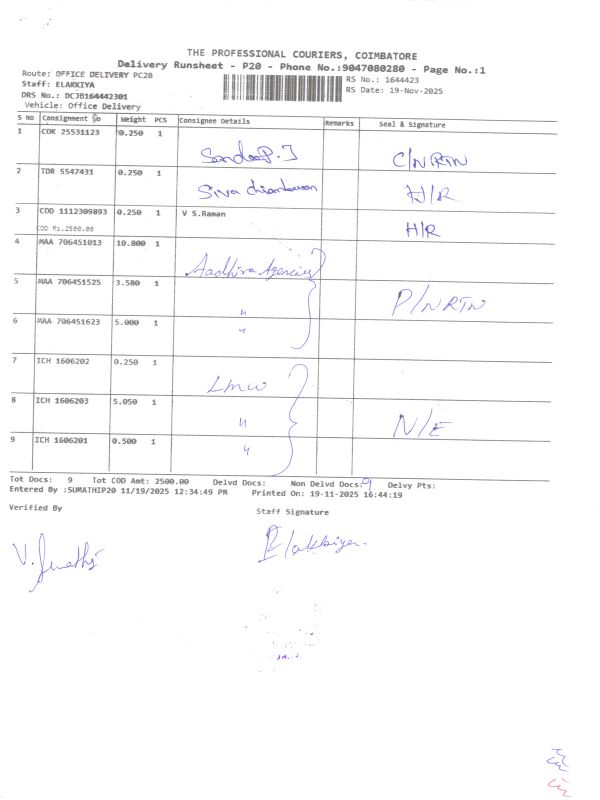 THE PROFESSIONAL COURIERS, COIMBATORE
Delivery Runsheet - P20 - Phone No.:9047080280 - Page No.:1
Route: OFFICE DELIVERY PC20
RS No.: 1644423
Staff: ELAKKIYA
RS Date: 19-Nov-2025
DRS No.: DCJB164442301
Vehicle: Office Delivery
S NO Consignment No Weight PCS Consignee Details Remarks Seal & Signature
1 COK 25531123 0.250 1 Sandeep. J C/NRTN
2 TDR 5547431 0.250 1 Siva H/R
3 COD 1112309893 0.250 1 V S.Raman H/R
COD Rs.2500.00
4 MAA 706451013 10.800 1 Aadhira Agencies
5 MAA 706451525 3.580 1 " P/NRTN
6 MAA 706451623 5.000 1 "
7 ICH 1606202 0.250 1 LMW
8 ICH 1606203 5.050 1 " N/E
9 ICH 1606201 0.500 1 "
Tot Docs: 9 Tot COD Amt: 2500.00 Delvd Docs: Non Delvd Docs: 9 Delvy Pts:
Entered By :SUMATHIP20 11/19/2025 12:34:49 PM Printed On: 19-11-2025 16:44:19
Verified By Staff Signature
Elakkiya